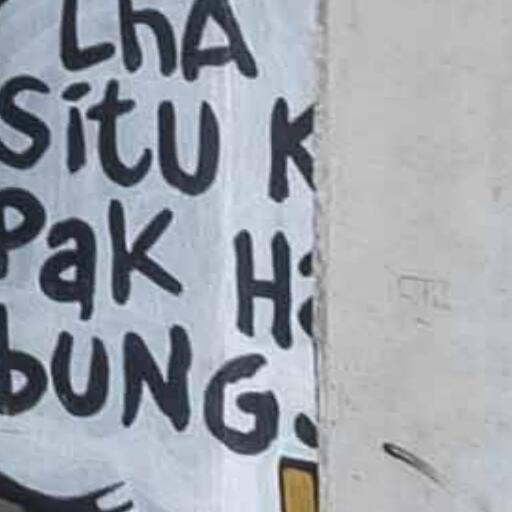 LhA
situ K
Pak Ha
bUNG.